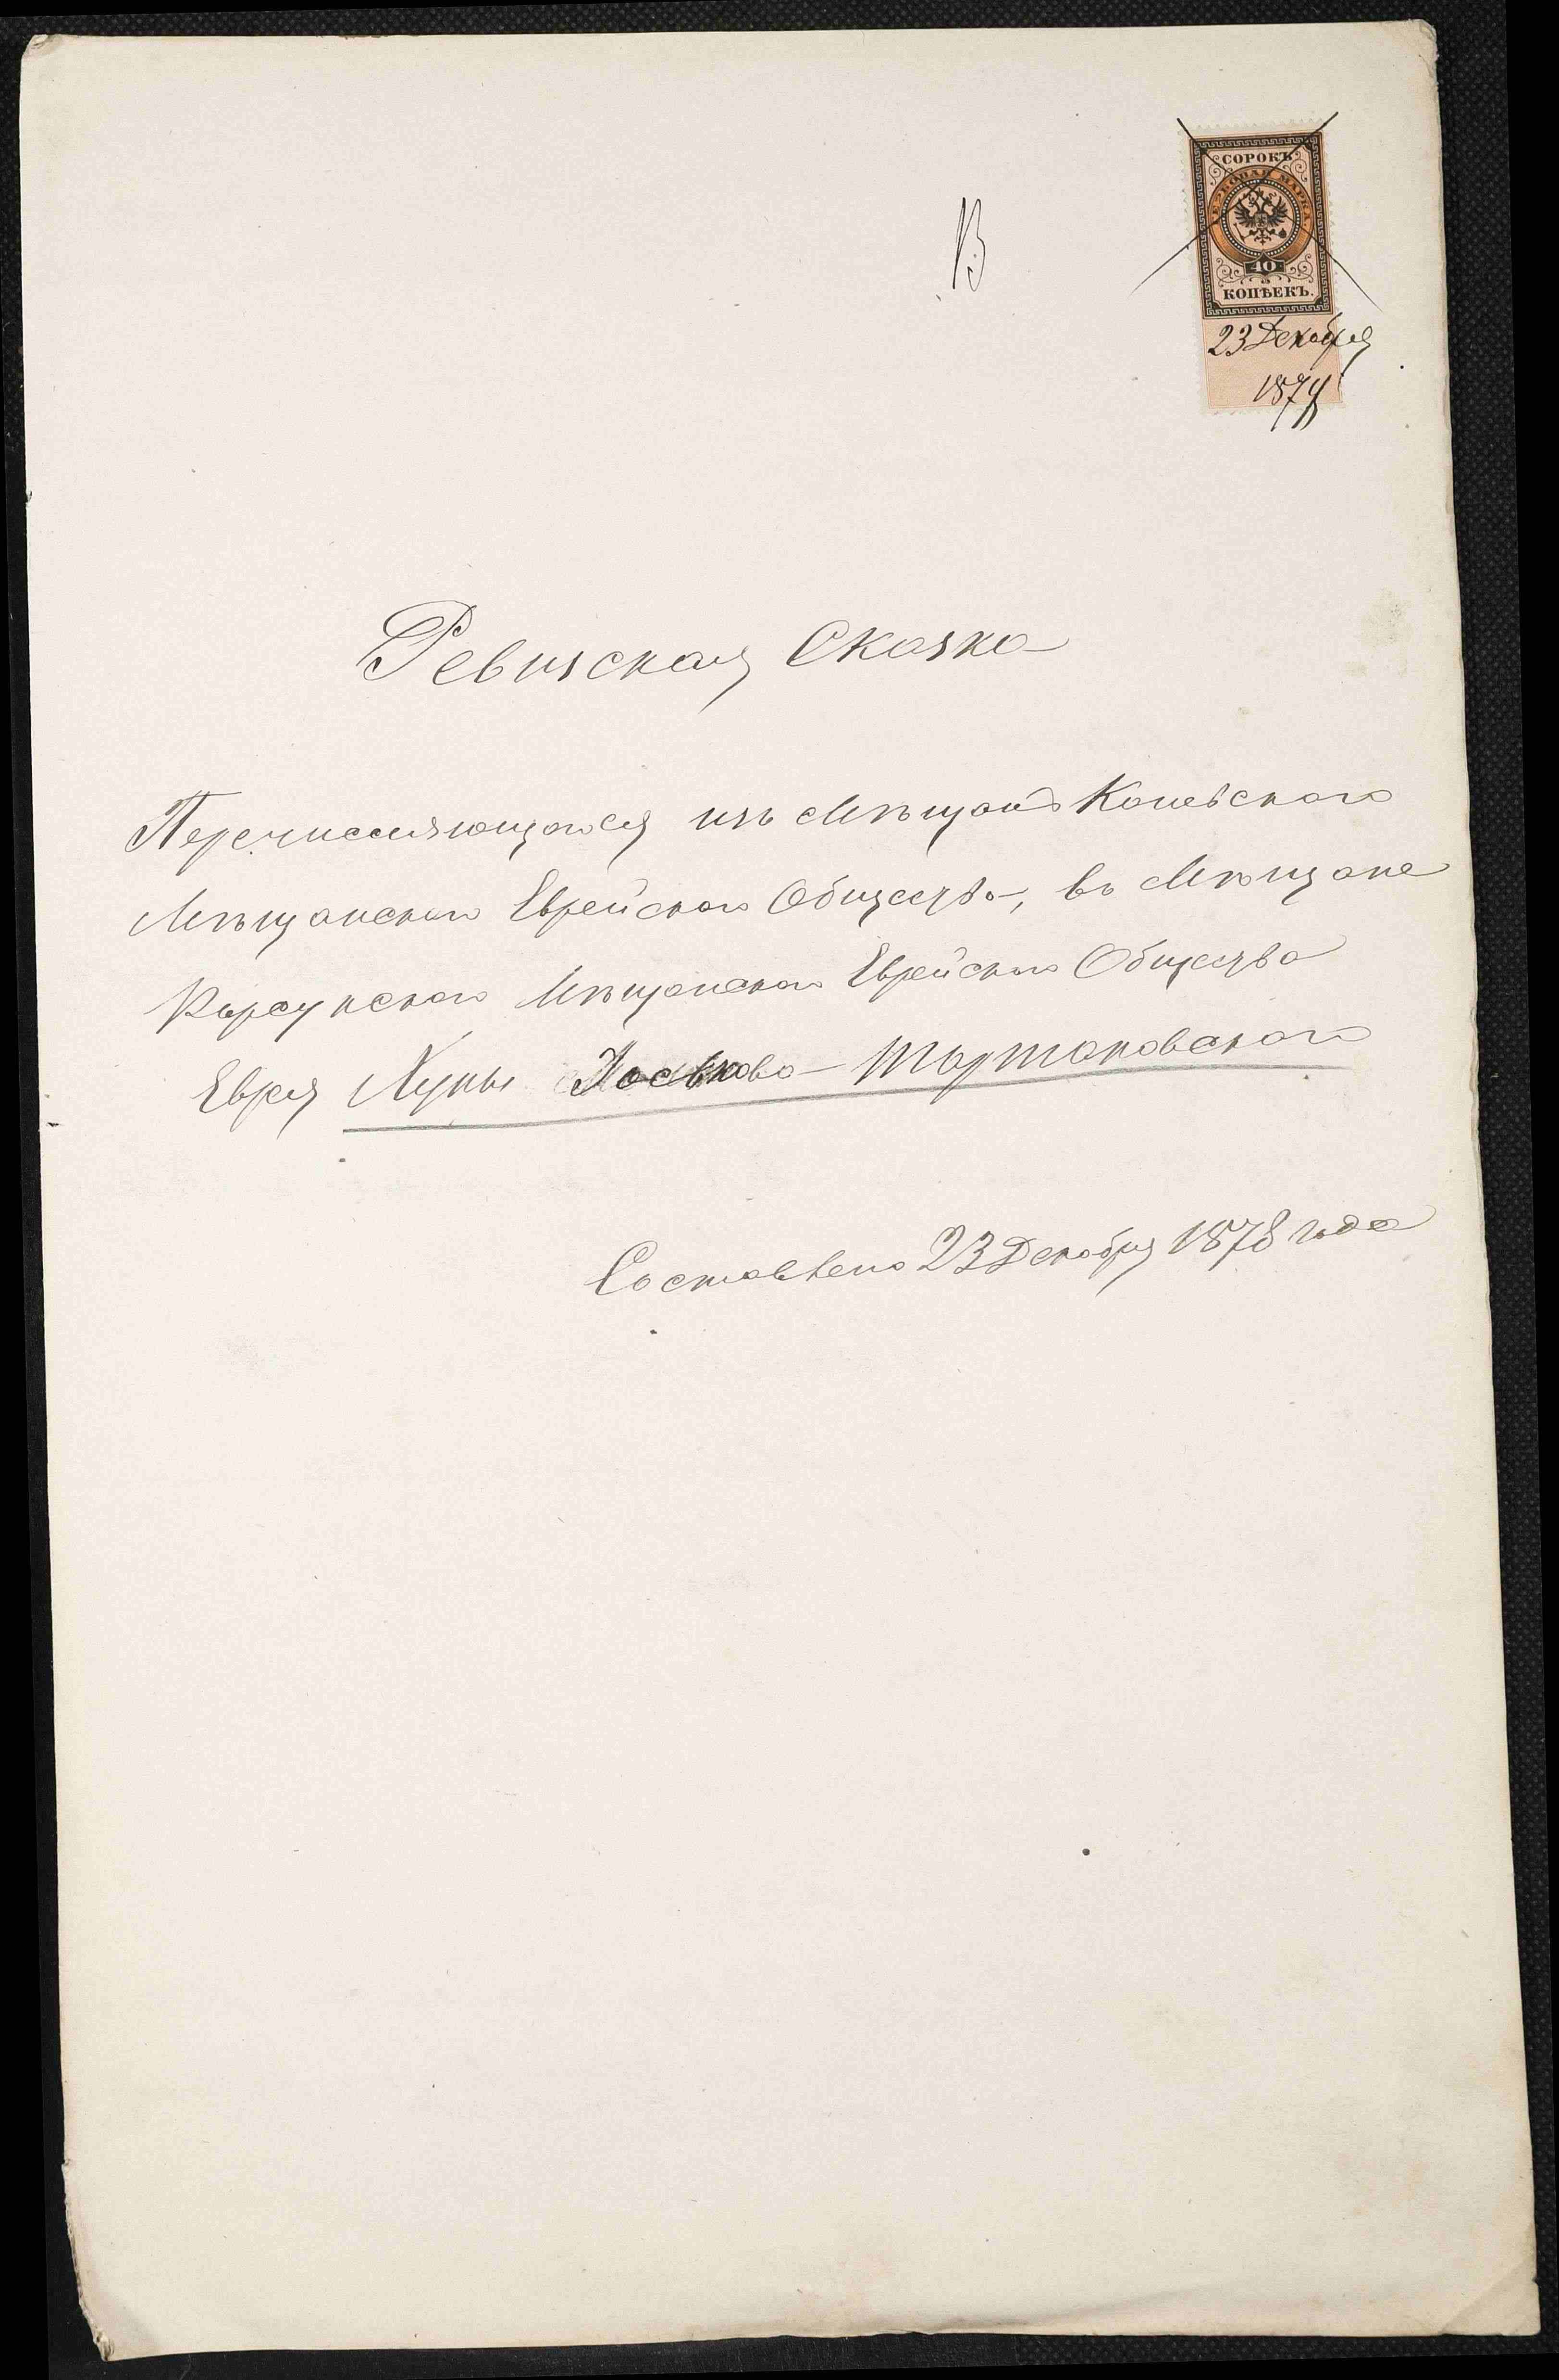 В
СОРОКЪ
ГЕРБОВАЯ МАРКА
40
КОПѢЕКЪ.
23 Декабря
1878
Ревизская Сказка
Перечисляющагося изъ Мѣщанъ Каневскаго
Мѣщанскаго Еврейскаго Общества, въ Мѣщане
Корсунскаго Мѣщанскаго Еврейскаго Общества
Еврея Хуны Іоськова Тартаковскаго
Составлена 23 Декабря 1878 года